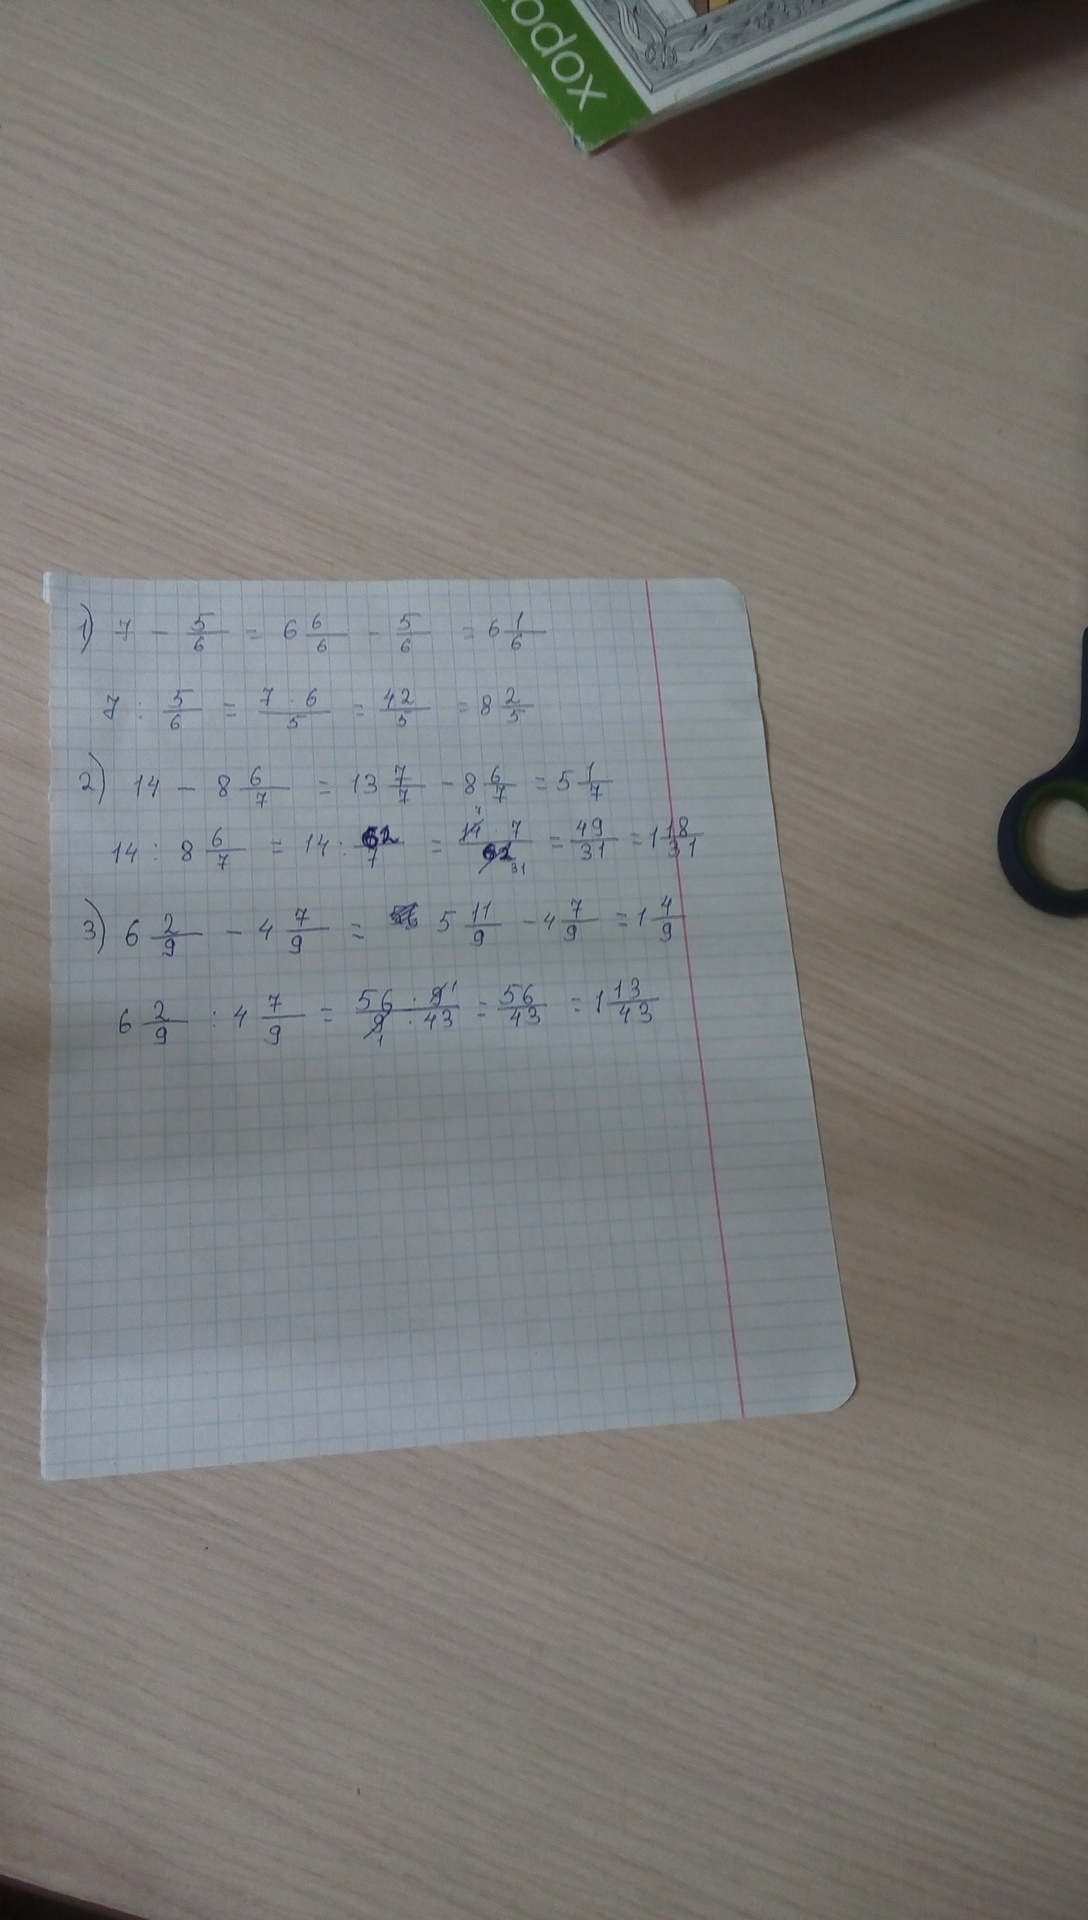 odox
1) 7 - 5/6 = 6 6/6 - 5/6 = 6 1/6
7 : 5/6 = 7 · 6/5 = 42/5 = 8 2/5
2) 14 - 8 6/7 = 13 7/7 - 8 6/7 = 5 1/7
14 : 8 6/7 = 14 : 62/7 = 14 · 7/62 = 49/31 = 1 18/31
3) 6 2/9 - 4 7/9 = 5 11/9 - 4 7/9 = 1 4/9
6 2/9 : 4 7/9 = 56 · 9/9 · 43 = 56/43 = 1 13/43